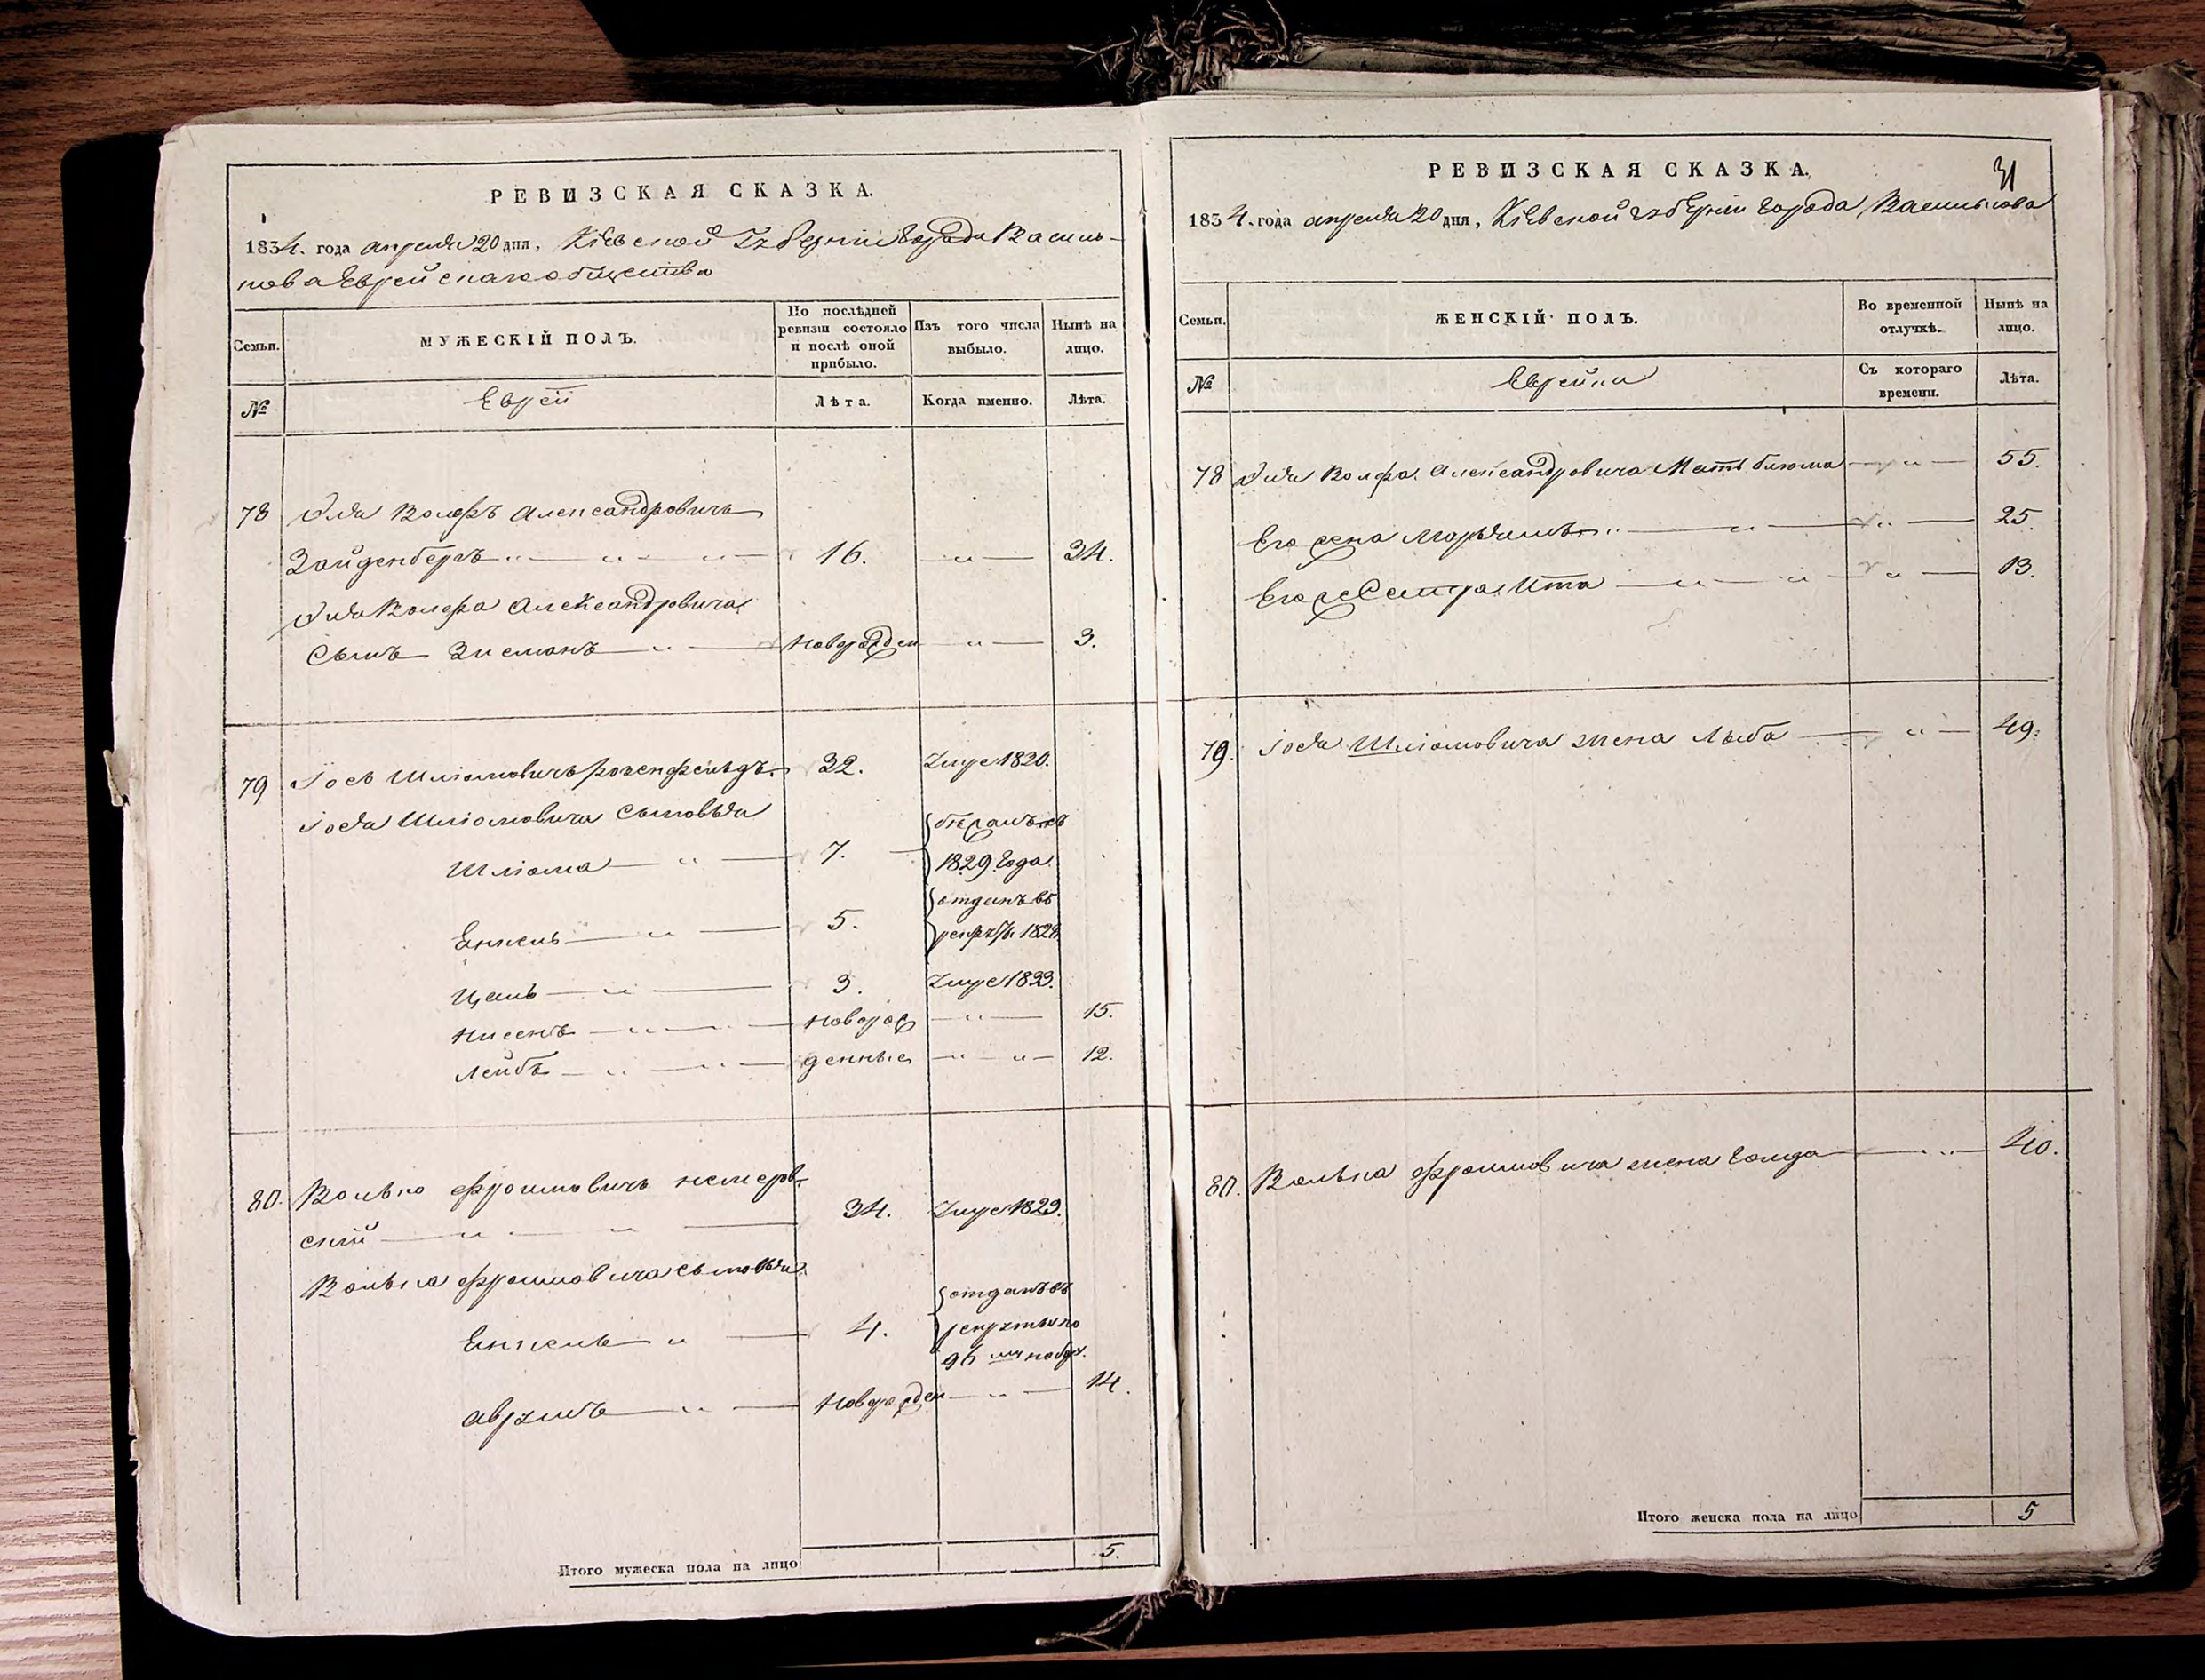 РЕВИЗСКАЯ СКАЗКА.
1834. года апреля 20 дня, Кіевской Губерніи города Василь-
кова Еврейскаго общества
Семьи.
МУЖЕСКІЙ ПОЛЪ.
По послѣдней ревизіи состояло и послѣ оной прибыло.
Изъ того числа выбыло.
Нынѣ на лицо.
№
Евреи
Лѣта.
Когда именно.
Лѣта.
78 Волфъ Александровичъ
Зайденбергъ 16. 34.
Волфа Александровича
Сынъ Зисманъ новорожден 3.
79 Іось Шліомовичъ розенфельдъ 32. Умре 1820.
Іося Шліомовича сыновья
Шліома 7. 1829 года.
Енкель 5. отданъ въ рекруты 1828
Цаль 3. Умре 1833.
Нисенъ новорож 15.
Лейбъ денные 12.
80. Волько Фроимовичъ немеров-
скій 34. Умре 1829.
Волька Фроимовича сыновья
Енкель 4. отданъ въ рекруты по 96 набору.
Аврумъ Новорожден 14.
Итого мужеска пола на лицо 5.
РЕВИЗСКАЯ СКАЗКА.
31
1834. года апреля 20 дня, Кіевской губерніи города Василькова
Семьи.
ЖЕНСКІЙ ПОЛЪ.
Во временной отлучкѣ.
Нынѣ на лицо.
№
Еврейки
Съ котораго времени.
Лѣта.
78 Волфа Александровича Мать блюма 55.
Его жена 25.
Его Сестра Ита 13.
79. Іося Шліомовича жена Лыба 49.
80. Волька Фроимовича жена Голда 40.
Итого женска пола на лицо 5